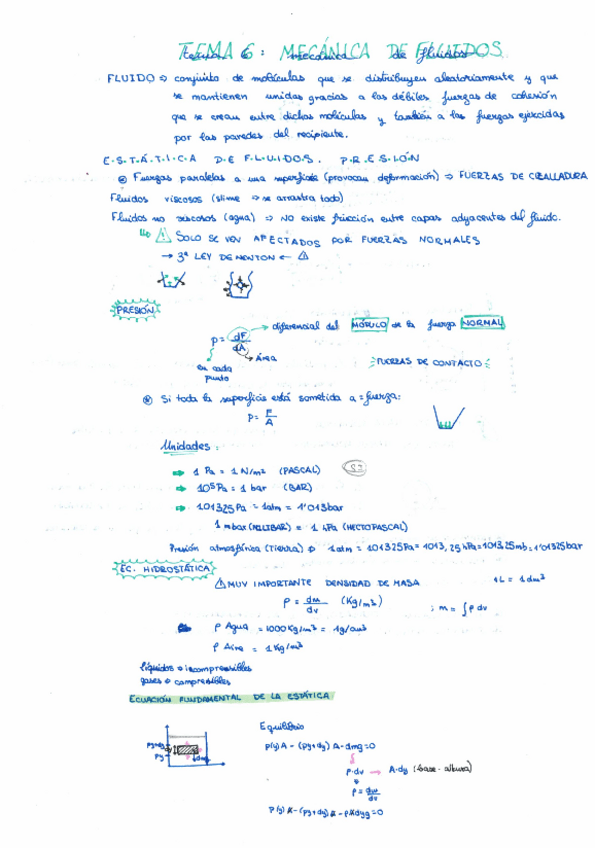 TEMA 6: MECÁNICA DE FLUIDOS
FLUIDO ⇒ conjunto de moléculas que se distribuyen aleatoriamente y que
se mantienen unidas gracias a las débiles fuerzas de cohesión
que se crean entre dichas moléculas y también a las fuerzas ejercidas
por las paredes del recipiente.
E.S.T.Á.T.I.C.A D.E F.L.U.I.D.O.S. P.R.E.S.I.Ó.N
Fuerzas paralelas a una superficie (provocan deformación) ⇒ FUERZAS DE CIZALLADURA
Fluidos viscosos (slime ⇒ se arrastra todo)
Fluidos no viscosos (agua) ⇒ NO existe fricción entre capas adyacentes del fluido.
SOLO SE VEN AFECTADOS POR FUERZAS NORMALES
→ 3ª LEY DE NEWTON ←
PRESIÓN
diferencial del MÓDULO de la fuerza NORMAL
p = dF/dA
Área
en cada punto
FUERZAS DE CONTACTO
Si toda la superficie está sometida a = fuerza:
p = F/A
Unidades:
1 Pa = 1 N/m² (PASCAL) S.I
10⁵ Pa = 1 bar (BAR)
101325 Pa = 1 atm = 1'013 bar
1 mbar (MILIBAR) = 1 hPa (HECTOPASCAL)
Presión atmosférica (Tierra) ⇒ 1 atm = 101325 Pa = 1013,25 hPa = 1013,25 mb = 1'01325 bar
EC. HIDROSTÁTICA
MUY IMPORTANTE DENSIDAD DE MASA 1L = 1dm³
ρ = dm/dv (Kg/m³) ; m = ∫ρ dv
ρ Agua = 1000 Kg/m³ = 1g/cm³
ρ Aire = 1 Kg/m³
líquidos ⇒ incompresibles
gases ⇒ compresibles
ECUACIÓN FUNDAMENTAL DE LA ESTÁTICA
Equilibrio
p(y) A - (py + dy) A - dmg = 0
ρ · dv → A · dy (base · altura)
ρ = dm/dv
p(y) A - (py + dy) A - ρ A dy g = 0